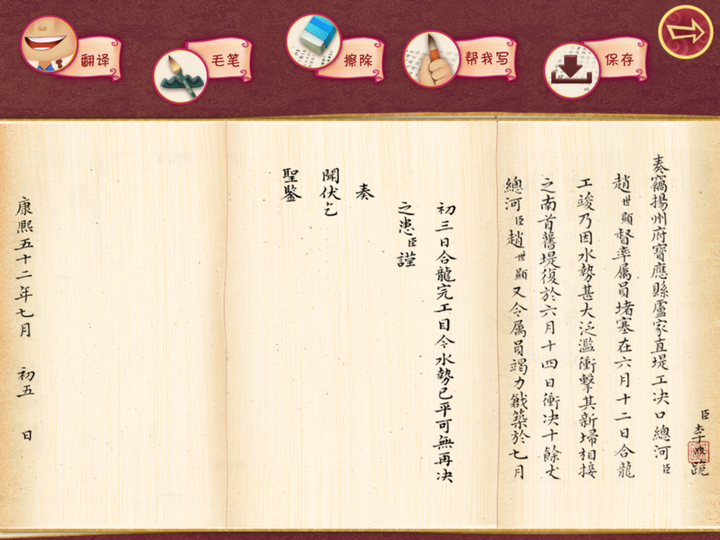 翻译
毛笔
擦除
帮我写
保存
臣李煦跪
奏竊揚州府寶應縣盧家直堤工决口總河臣
趙世顯督率属員堵塞在六月十二日合龍
工竣乃因水勢甚大泛濫衝擊其新埽相接
之南首舊堤復於六月十四日衝决十餘丈
總河臣趙世顯又令属員竭力戧築於七月
初三日合龍完工目今水勢已平可無再决
之患臣謹
奏
聞伏乞
聖鑒
康熙五十二年七月 初五 日